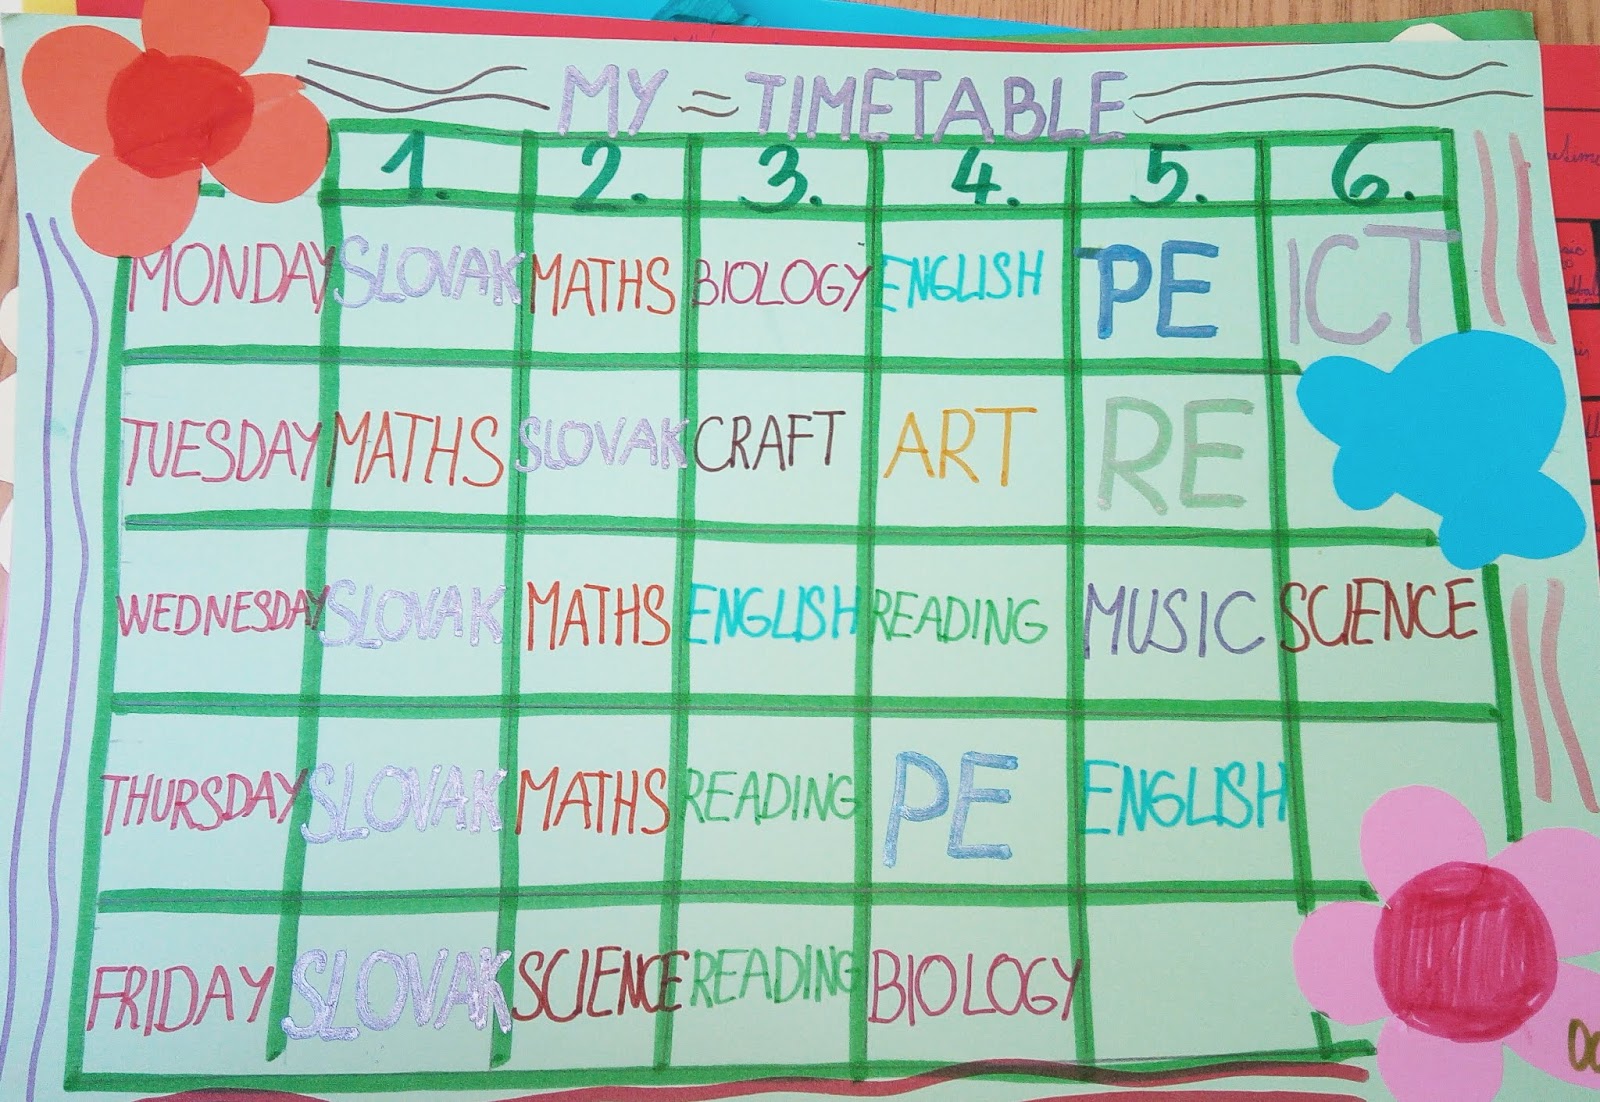 MY TIMETABLE
1. 2. 3. 4. 5. 6.
MONDAY SLOVAK MATHS BIOLOGY ENGLISH PE ICT
TUESDAY MATHS SLOVAK CRAFT ART RE
WEDNESDAY SLOVAK MATHS ENGLISH READING MUSIC SCIENCE
THURSDAY SLOVAK MATHS READING PE ENGLISH
FRIDAY SLOVAK SCIENCE READING BIOLOGY